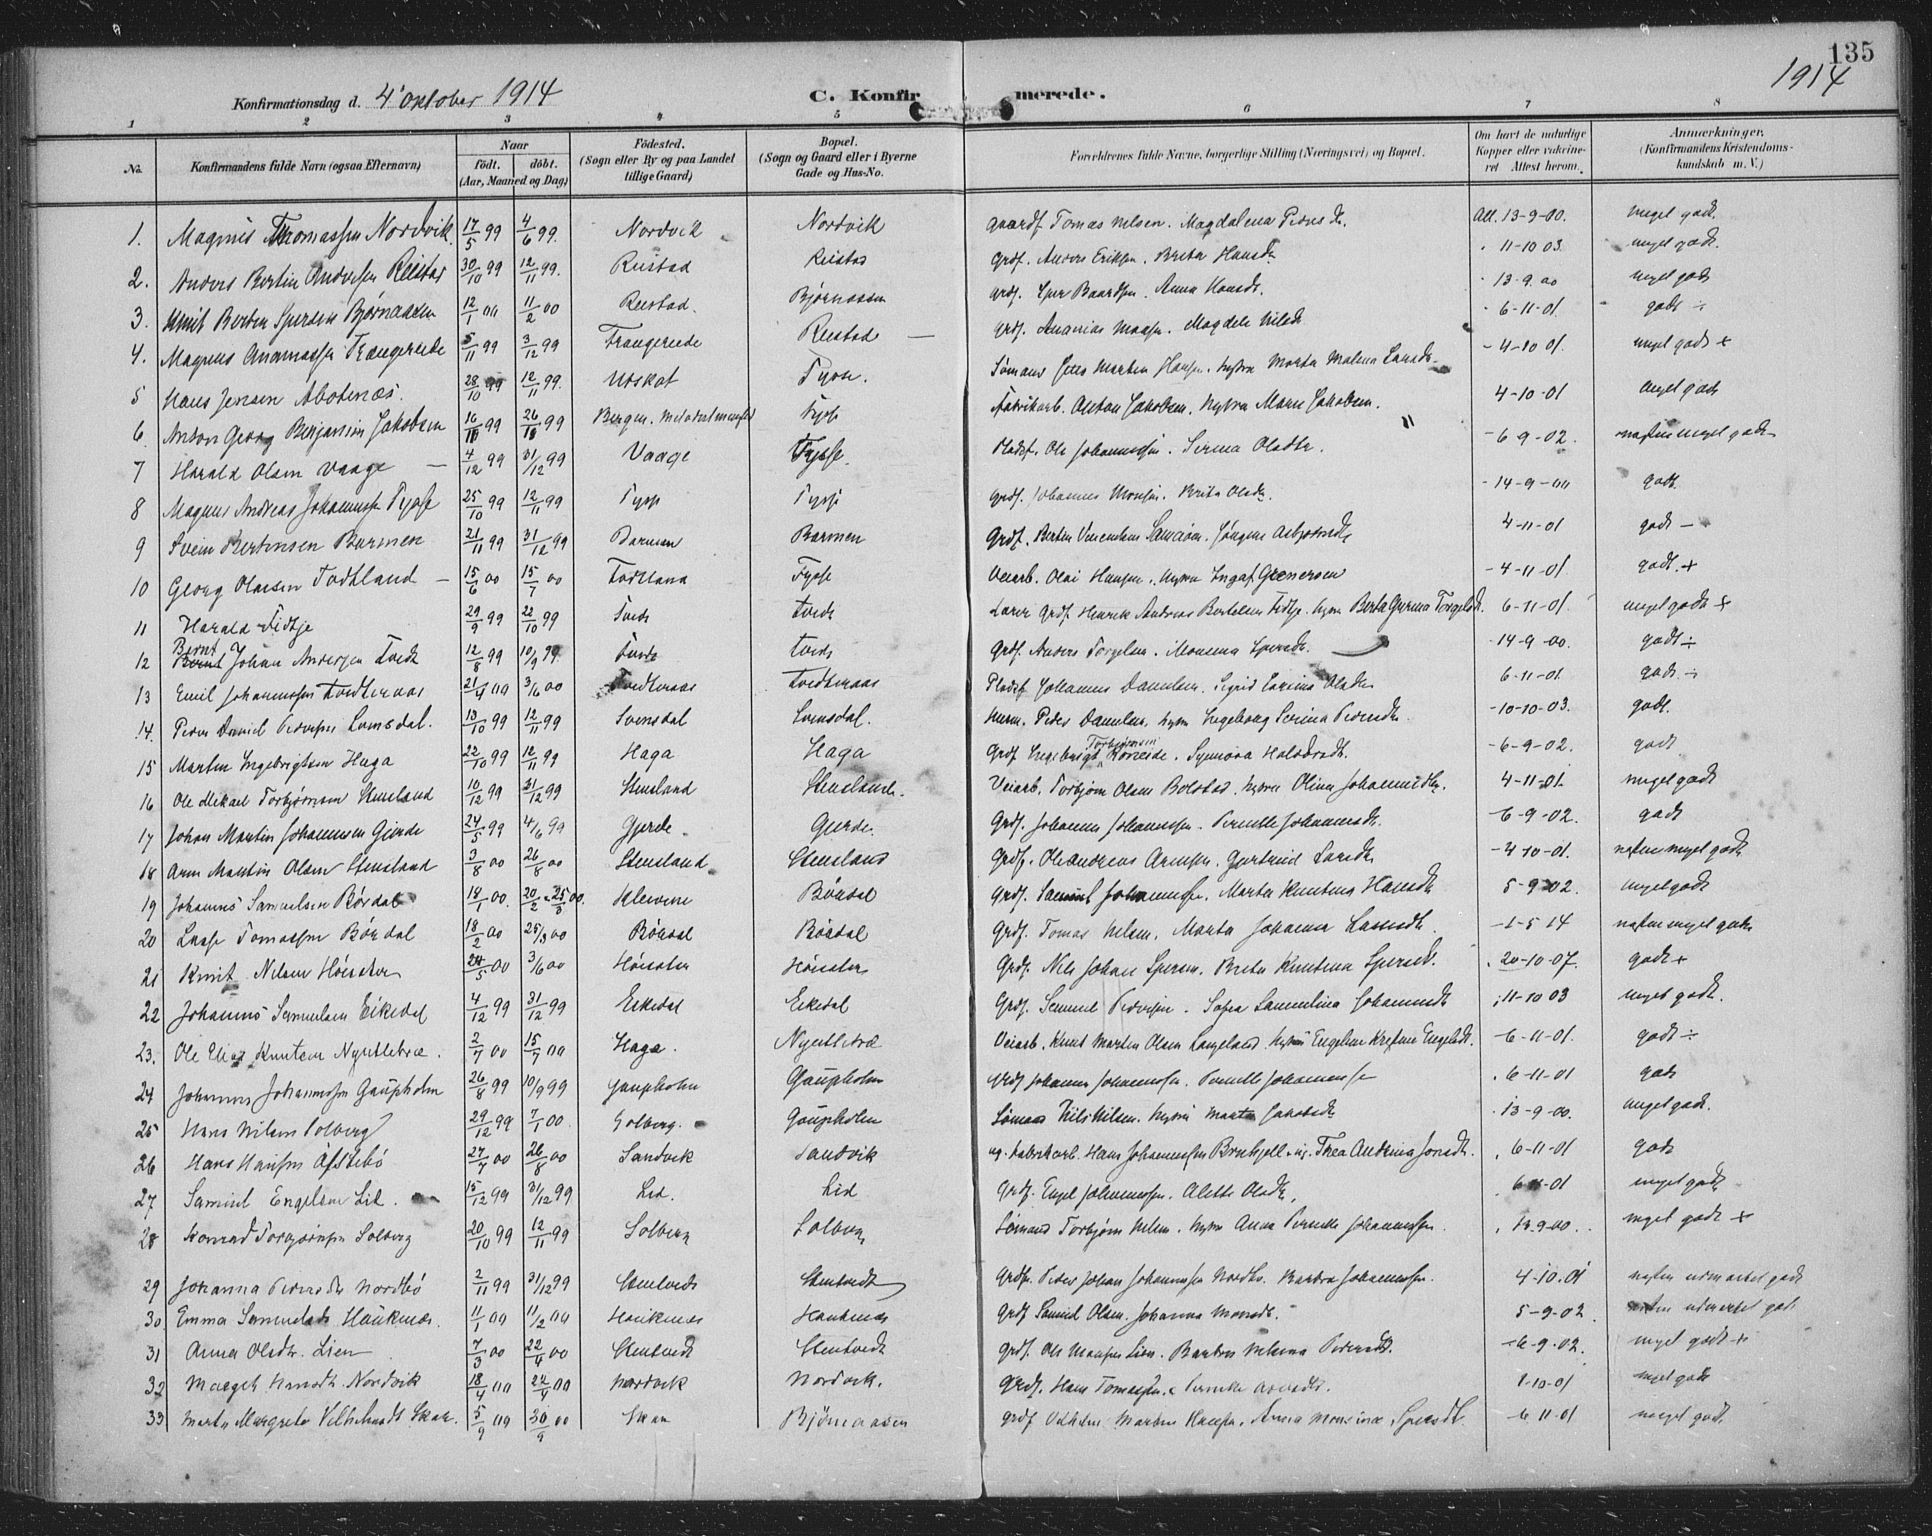 135
1914
Konfirmationsdag d. 4' oktober 1914
C. Konfir merede.
1 2 3 4 5 6 7 8
No. Konfirmandens fulde Navn (ogsaa Efternavn) Naar født. døbt. (Aar, Maaned og Dag) Födested. (Sogn eller By og paa Landet tillige Gaard) Bopæl. (Sogn og Gaard eller i Byerne Gade og Hus-No. Forældrenes fulde Navne, borgerlige Stilling (Næringsvei) og Bopæl. Om havt de naturlige Kopper eller vakcineret Attest herom. Anmærkninger. (Konfirmandens Kristendomskundskab m. V.)
1. Magnus Thomassen Nordvik 17/5 99 4/6 99. Nordvik Nordvik gaardf Tomas Nilsen. Magdalena Att. 13-9-00. meget godt.
2. Anders Bertin Andersen Reistad 30/10 99 12/11 99. Reistad Reistad grdf. Anders Eriksen. Brita Hansdt. 11-10 03. meget godt.
3. Bertin Bjørnaasen 12/1 00 11/2 00 Reistad. Bjørnaasen grdf. Sjur Baardsen. Anna Hansdt. 13-9-00 meget godt
4. Magnus Ananiassen Trængereide 5/11 99 3/12 99 Trængereide Reistad — grdf. Ananias Magdeli Nilsdt. 6-11-01. godt ÷
5 Hans Jensen Abotnæs. 28/10 99 12/11 99. Tysse. Sömand Jens Martin Hansen. hustru Marta Malena Larsdt. -4-10 01. meget godt +
6. Anton Georg Benjamin Jakobsen 16/10 99 26/10 99 Bergen. Tysse Fabrikarb. Anton Jakobsen. hustru Marie Jakobsen. 4-10-01 meget godt
7 Harald Olsen Vaage — 4/12 99 31/12 99 Vaage Tysse. Pladsf. Ole Johannessen. Serina Olsdtr. -6 9-02. næsten meget godt
8 Magnus Andreas Johannessen Tysse 25/10 99 12/11 99 Tysse Tysse grdf. Johannes Monsen. Brita Olsdt. -14-9-00 godt.
9 Svein Bertinsen Barmen 21/11 99 31/12 99 Barmen Barmen Grdf. Bertin 4-11-01 godt —
10 Georg Olaisen Todtland — 15/6 00 15/7 00 Todtland Tysse Veiarb. Olai Hansen. hustru -4-11-01 godt. +
11 Harald Fidtje 29/9 99 22/10 99 Tvedt Tvedt Lærer Grdf. Henrik Andreas Bertelsen Fidtje. hustru Berta Gurina Torgelsdt. 6-11-01. meget godt +
12 Bernt Johan Andersen Tvedt 12/8 99 10/9 99. Tvedt Tvedt Grdf. Anders Torgelsen. Monsena Sjursdt. -14-9-00. godt ÷
13 Emil Johannessen Tvedteraas 21/4 00 3/6 00 Tvedteraas Tvedteraas Pladsf. Johannes Danielsen. Sigrid Olsdtr. 6-11-01 godt. ÷
14. Peder Daniel Pedersen Svensdal. 13/10 99 12/11 99 Svensdal Svensdal. Huusm. Peder Danielsen. hustru Ingeborg Serina Pedersdt. -10-10-03. godt.
15 Martin Ingebrigtsen Haga 22/10 99 12/11 99 Haga Haga Grdf Ingebrigt Torbjørnsen Röneide. Synnøva Halvorsdt. -6-9-02. godt
16 Ole Mikael Torbjørnsen Stensland 10/12 99 31/12 99 Stensland Stensland. Veiarb. Torbjørn Olsen Bolstad. hustru Olina Johannesdtr. 4-11-01. meget godt
17 Johan Martin Johannessen Gjerde 24/5 99 4/6 99 Gjerde. Gjerde. Grdf. Johannes Johannessen. Pernille Johannesdt. -6-9-02. godt
18 Arne Martin Olsen Stensland 3/8 00 26/8 00 Stensland Stensland Grdf. Ole Andreas Arnesen. Gjertrud Larsdtr. -4 10-01. næsten meget godt
19 Johannes Samuelsen Bördal 18/1 00. 20/2 - 25/3 00. Klevene Bördal Grdf. Samuel Johannessen. Marta Knutina Hansdtr. 5-9-02. meget godt
20 Lasse Tomassen Bördal 18/2 00 25/3 00 Bördal Bördal Grdf. Tomas Nilsen. Marta Johanna Lassedt. -1-5 14 næsten meget godt
21 Knut Nilsen Hönster 24/5 00 3/6 00 Hönster Hönster Grdf. Nils Johan Sjursen. Brita Knutena Sjursdt. 20-10-07. godt +
22 Johannes Samuelsen Eikedal 4/12 99 31/12 99 Eikedal Eikedal Grdf. Samuel Pedersen. Sofia Samuelina Johannesdt. 11-10 03 meget godt.
23. Ole Elias Knutsen . 2/7 00 15/7 00 Haga. Veiarb. Knut Martin Olsen Langeland. hustru -6-11-01. godt ÷
24 Johannes Johannessen Gaupholm 26/8 99 10/9 99 Gaupholm Gaupholm Grdf Johannes Johannessen. Pernille Johannessen 6-11-01 godt
25 Hans Nilsen Solberg 29/12 99 7/1 00. Solberg. Gaupholm Sömand Nils Nilsen. hustru Marta Jakobsdt 13-9-00. meget godt.
26 Hans Hansen Afstebö 27/7 00 26/8 00 Sandvik Sandvik Hans Johannessen Thea Andrina Jonsdt. 6-11-01 godt
27 Samuel Engelsen Lid. 15/12 99 31/12 99 Lid. Lid Grdf. Engel Johannessen. Aletta Olsdt. 6-11-01 meget godt
28 Konrad Torbjørnsen Solberg 20/10 99 12/11 99 Solberg Solberg Sömand Torbjørn Nilsen. hustru Anna Pernille Johannessen. 13-9-00. meget godt +
29 Johanna Pedersdt Nordbö 2/11 99 31/12 99 Stentvedt Stentvedt Grdf. Peder Johan Johannessen Nordbö. Barbra Johannessen. 4-10-01 næsten udmærket godt
30. Emma Samuelsdt. Haukenæs. 11/1 00 11/2 00 Haukenæs Haukenæs Grdf Samuel Olsen. Johanna Monsdt. 5-9-02. næsten udmærket godt
31 Anna Olsdtr. Lien 7/3 00 22/4 00 Stentvedt Stentvedt Grdf. Ole Monsen Lien. Barbra Nilsina Pedersdt. -6-9-02. meget godt +
32 Hansdt. Nordvik 18/4 00 22/4 00 Nordvik Nordvik. Grdf. Hans Tomassen. Pernille -10-01 meget godt
33 Marta Margreta Vilhelmsdt Skar. 5/9 00 30/9 00 Skar Bjørnaasen grdf Vilhelm Martin Hansen. Anna Monsina Sjursdt. -6 11-01 meget godt